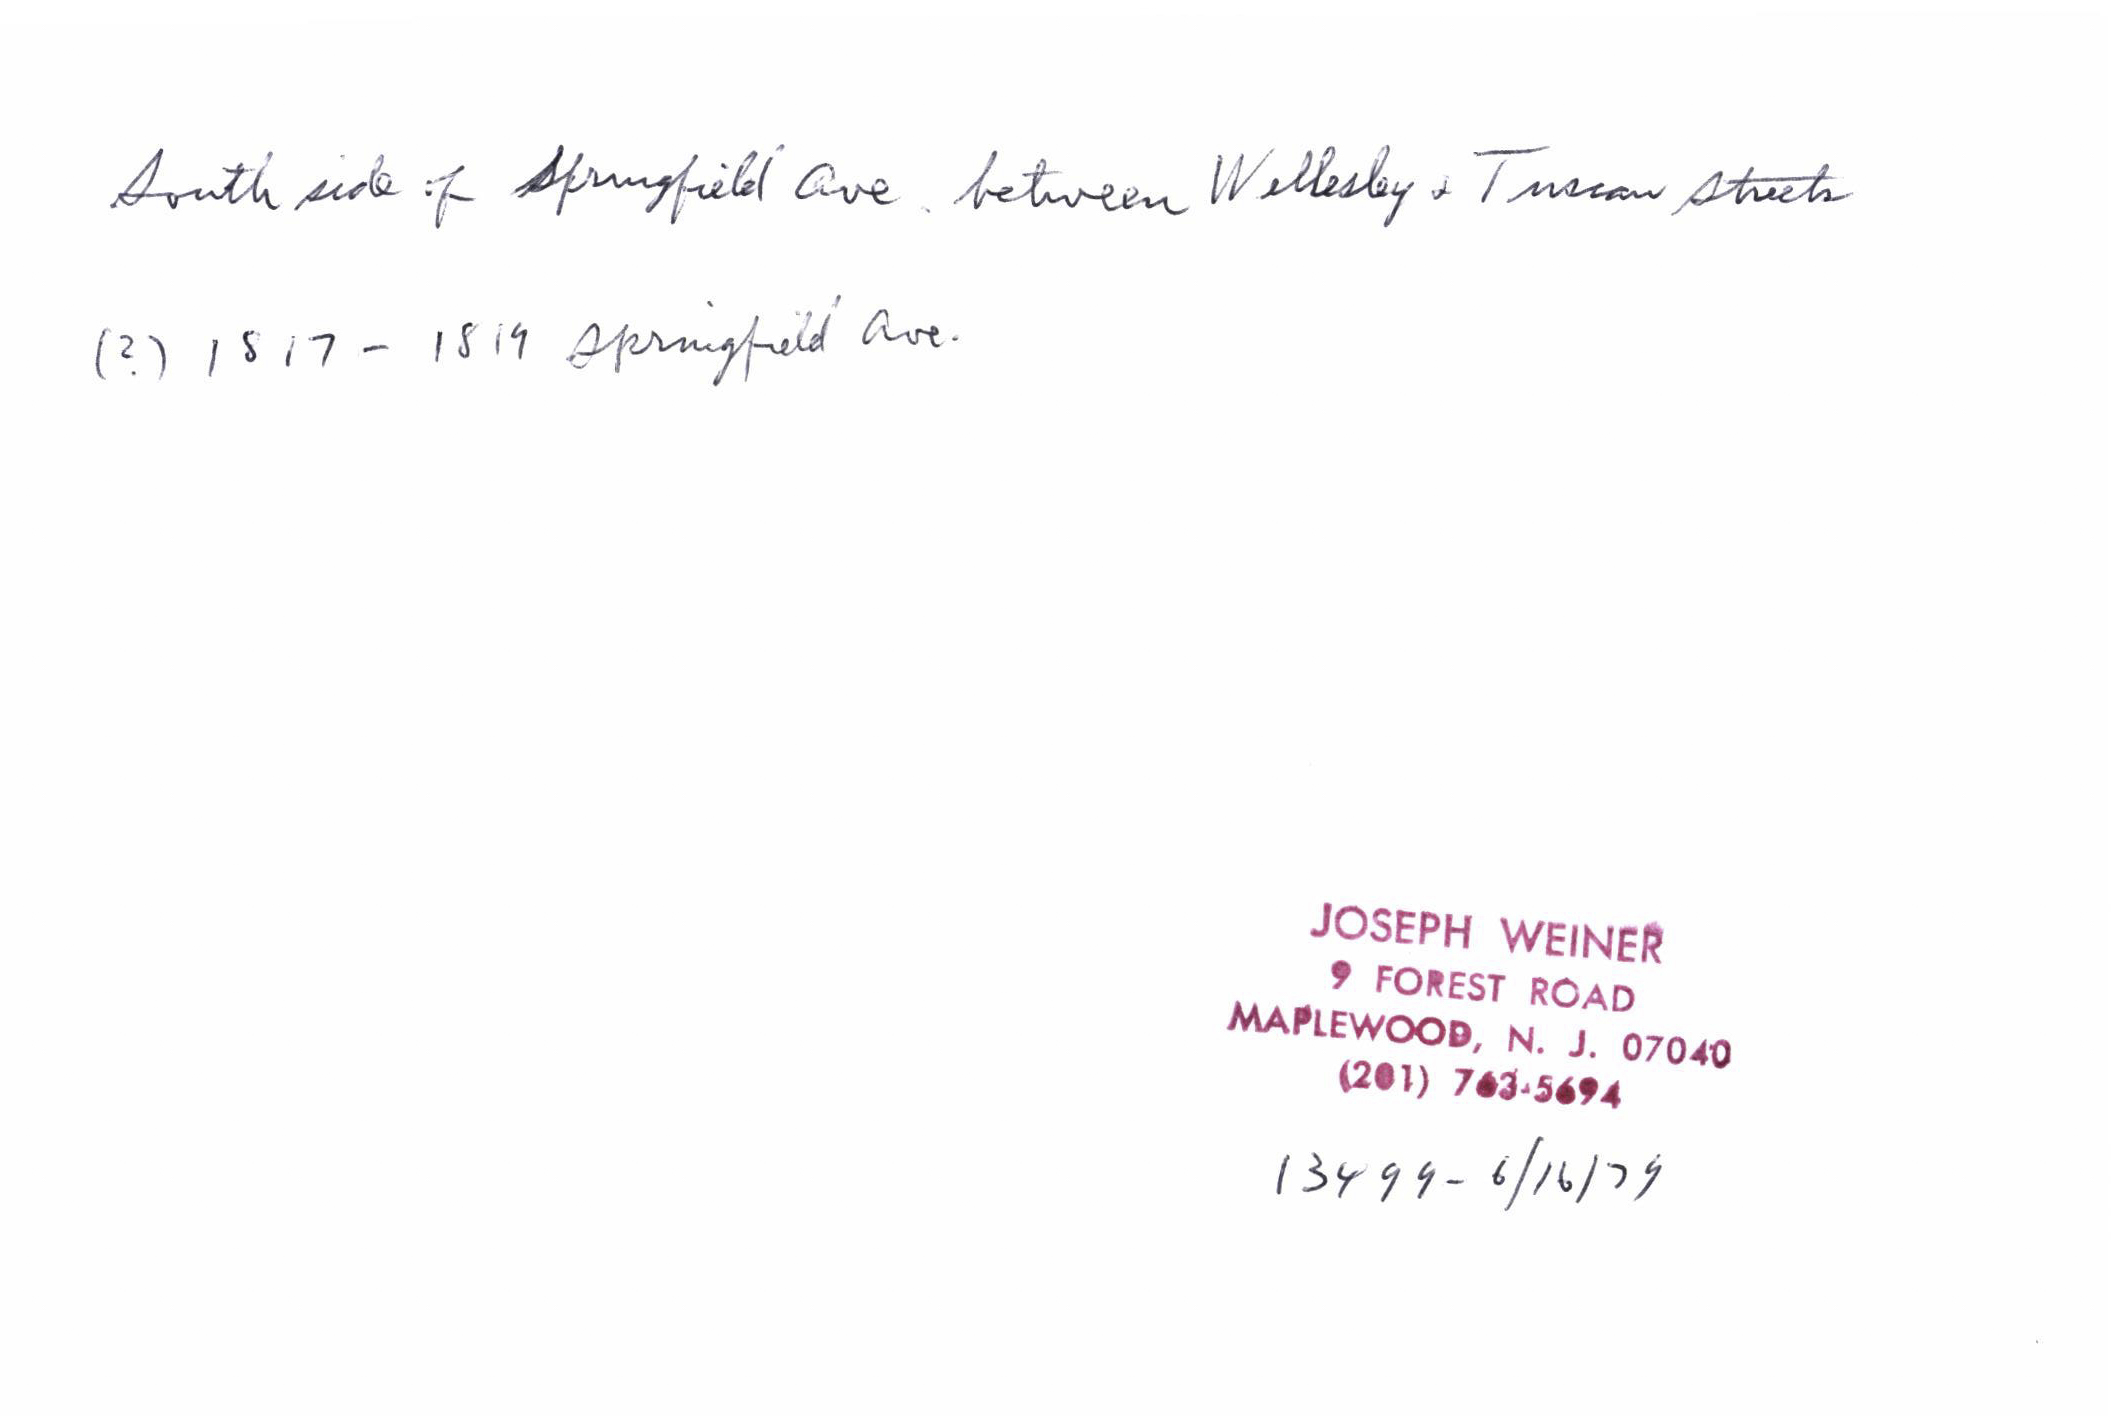 South side of Springfield Ave. between Wellesley & Tuscan Streets
(?) 1817 - 1819 Springfield Ave.
JOSEPH WEINER
9 FOREST ROAD
MAPLEWOOD, N. J. 07040
(201) 763-5694
13499 - 6/16/79